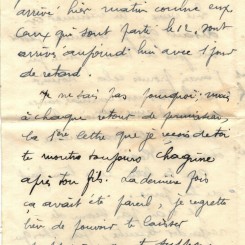 arrivé hier matin comme eux
Ceux qui sont parti le 12, sont
arrivés aujourd'hui avec 1 jour
de retard.
Je ne sais pas pourquoi mais
à chaque retour de permission,
la 1ère lettre que je reçois de toi
te montre toujours chagrine
après ton fils. La dernière fois
ça avait été pareil, je regrette
bien de pouvoir te laisser